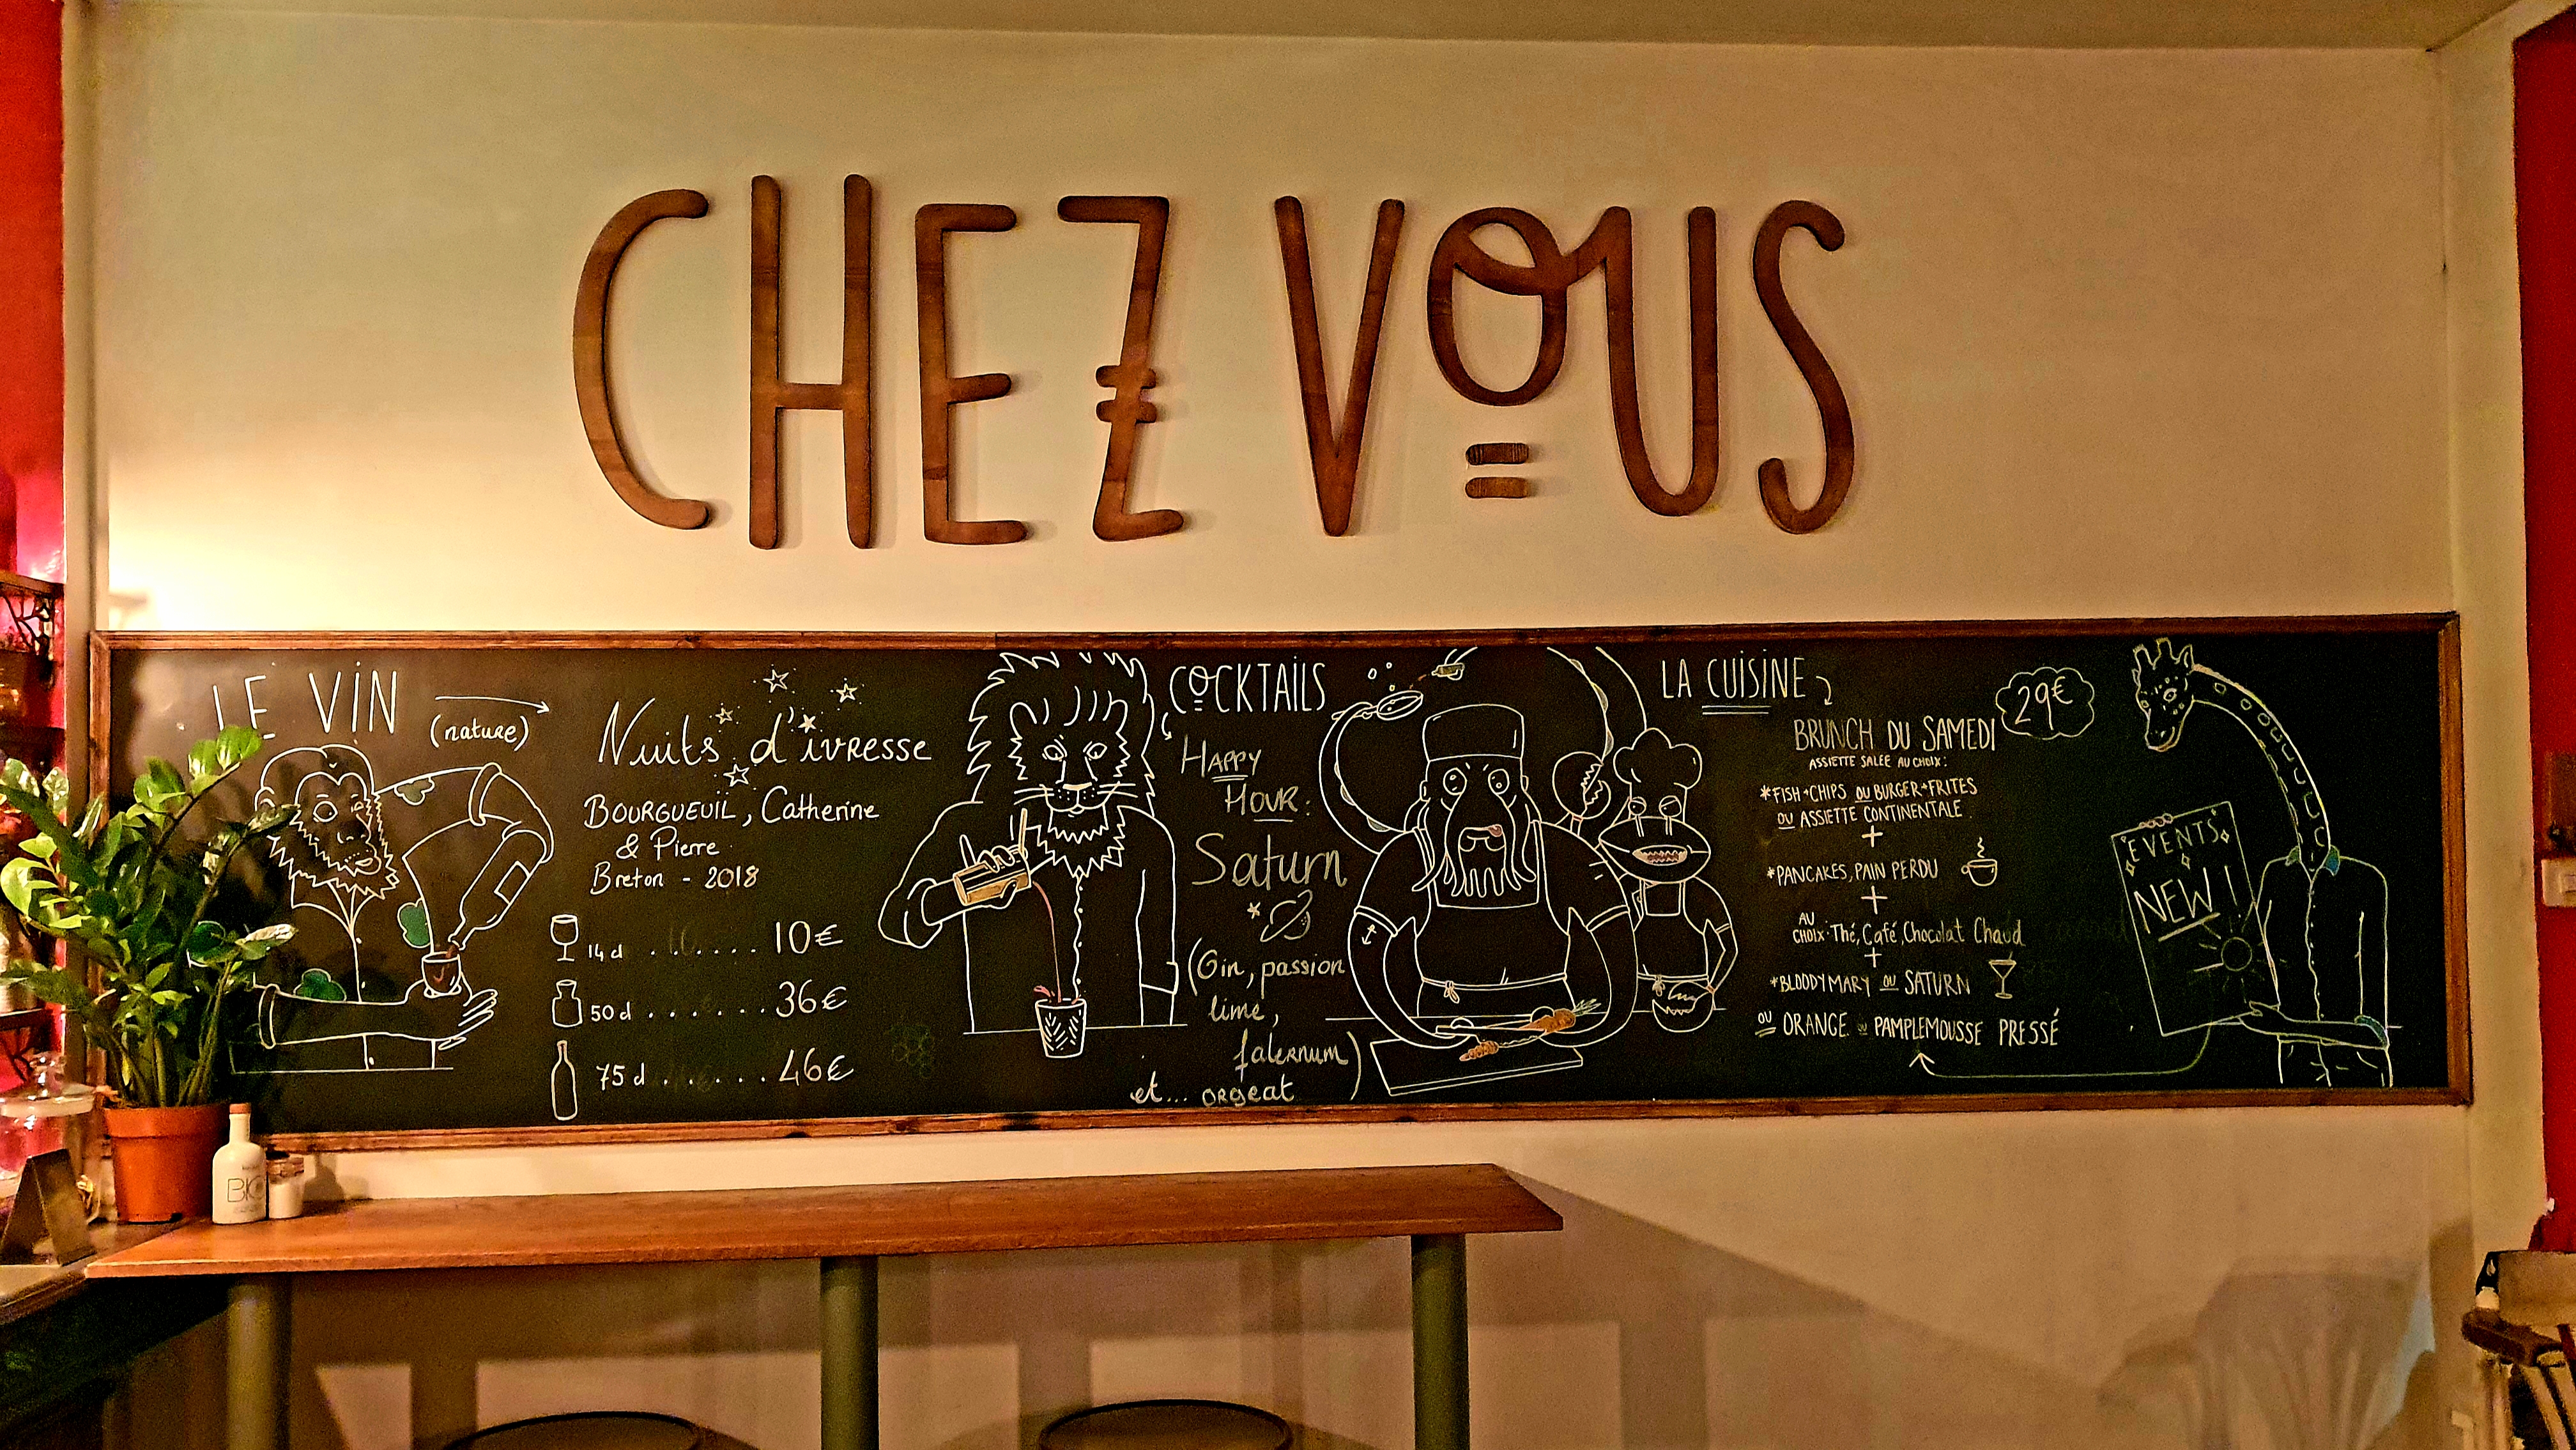 CHEZ VOUS
LE VIN
(nature)
Nuits d'ivresse
BOURGUEIL, Catherine
& Pierre
Breton - 2018
14 cl ....... 10€
50 cl ....... 36€
75 cl ...... 46€
COCKTAILS
HAPPY
HOUR:
Saturn
(Gin, passion
lime,
falernum)
et... orgeat
LA CUISINE
BRUNCH DU SAMEDI
29€
ASSIETTE SALÉE AU CHOIX:
*FISH+CHIPS OU BURGER+FRITES
OU ASSIETTE CONTINENTALE
+
*PANCAKES, PAIN PERDU
+
AU
CHOIX: Thé, Café, Chocolat Chaud
+
*BLOODY MARY OU SATURN
OU ORANGE OU PAMPLEMOUSSE PRESSÉ
EVENTS
NEW!